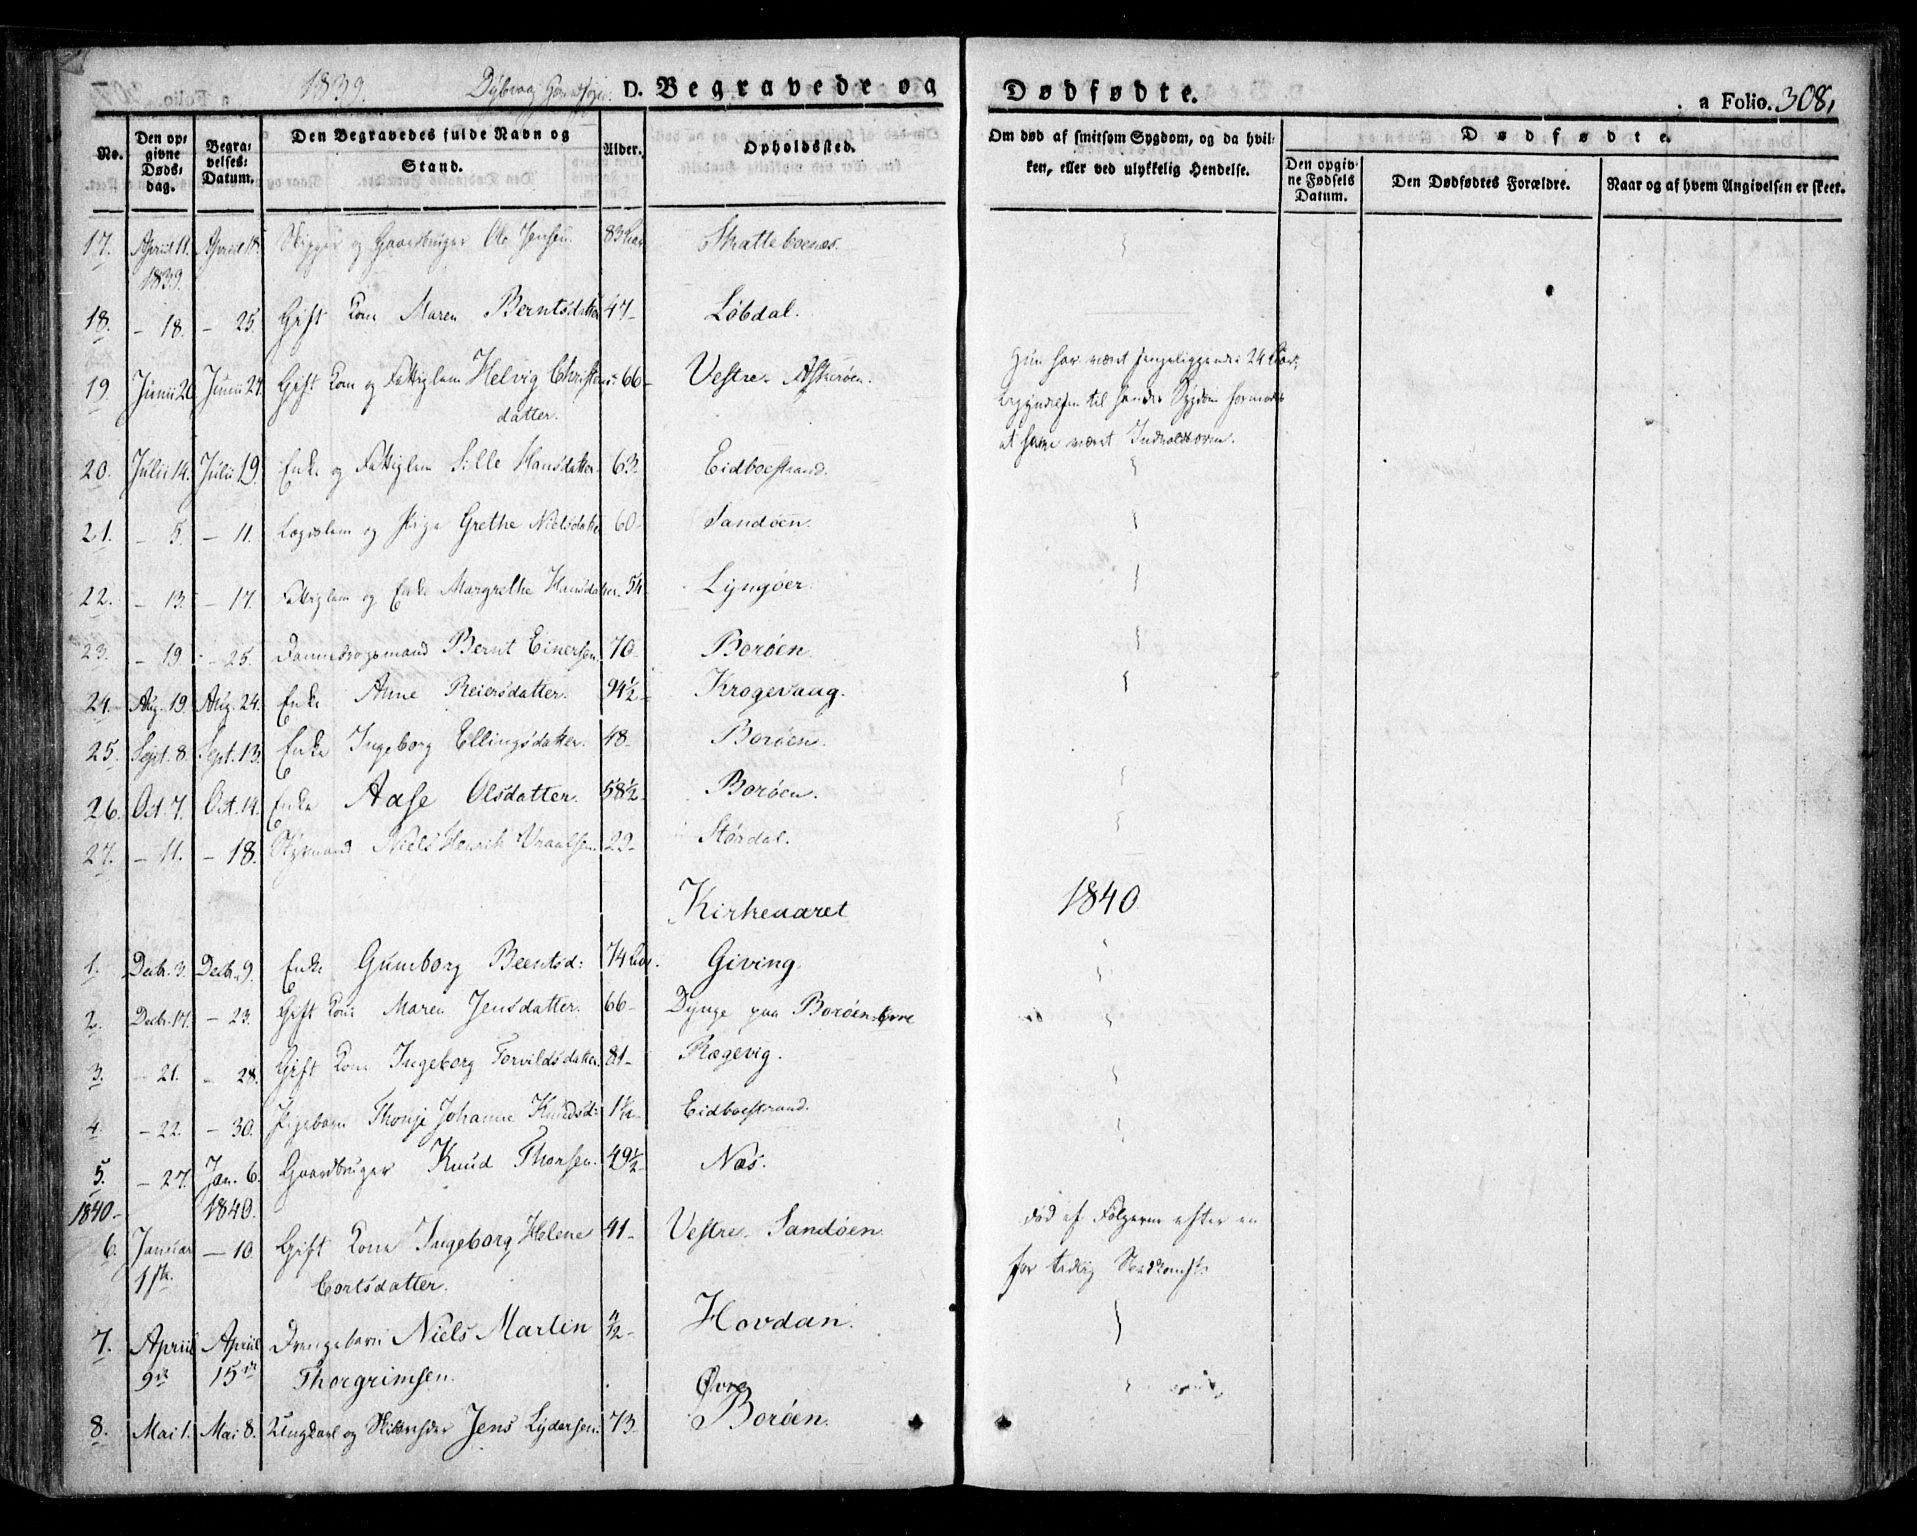 1839. Dybvag D. Begravede og Dødfødte. a Folio. 308,
No. Den opgivne Dødsdag. Begravelses-Datum. Den Begravedes fulde Navn og Stand. Alder. Opholdssted. Om død af smitsom Sygdom, og da hvilken, eller ved ulykkelig Hendelse. Dødfødte. Den opgivne Fødsels Datum. Den Dødfødtes Forældre. Naar og af hvem Angivelsen er skeet.
17. April 11. 1839. April 18. Skipper og Gaardbruger Ole Jensen. 83 Skatteboenes.
18. – 18. – 25. Gift Kone Maren Berntsdatter 47– Løbdal.
19. Junii 20. Junii 27. Gift Kone og Fattiglem Helvig Christens- 66– Vestre Askerøen. Hun har været sengeliggende i 24 Aar,
datter. til hendes Sygdom
at have været
20. Julii 14. Julii 19. Enke og Fattiglem Sille Hansdatter 63– Eidboestrand.
21. – 5. – 11. Lægdslem og Pige Grethe Nielsdatter 60– Sandøen.
22. – 13. – 17. Fattiglem og Enke Margrethe Hansdatter. 54 Lyngøer.
23. – 19. – 25. Dannebrogsmand Bernt Einersen. 70– Borøen.
24. Aug. 19. Aug. 24. Enke Anne Reiersdatter. 94½– Krogevaag.
25. Sept. 8. Sept. 13. Enke Ingeborg Ellingsdatter. 48– Borøen.
26. Oct 7. Oct. 14. Enke Aase Olsdatter. 58½– Borøen.
27. – 11. – 18. Niels Henrik Vraalsen. 22– Størdal.
Kirkeaaret 1840
1. Decbr. 3. Decbr. 9. Enke Gumborg Beentsd: 74 Giving
2. Decbr. 17. – 23. Gift Kone Maren Jensdatter. 66– Dynge paa Borøen
3. – 21. – 28. Gift Kone Ingeborg Torvildsdatter 81– Rægevig.
4. – 22. – 30. Pigebarn Thonje Johanne Knudsd: Eidboestrand.
5. – 27. Jan. 6. Gaardbruger Knud Thorsen. 49½– Næs.
1840– 1840.
6. Januar – 10 Gift Kone Ingeborg Helene 41– Vestre Sandøen. død af Følgerne efter en
1ste. Cortsdatter. for tidlig
7. April April Drengebarn Niels Martin Hovdan.
9de 15de Thorgrimsen. Øvre
8. Mai 1. Mai 8. Ungkarl og Jens Lydersen. 73. Borøen.